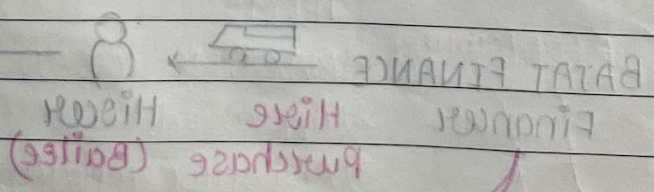 BAJAJ FINANCE
Financer Hiere Hierer
purchase (Bailee)